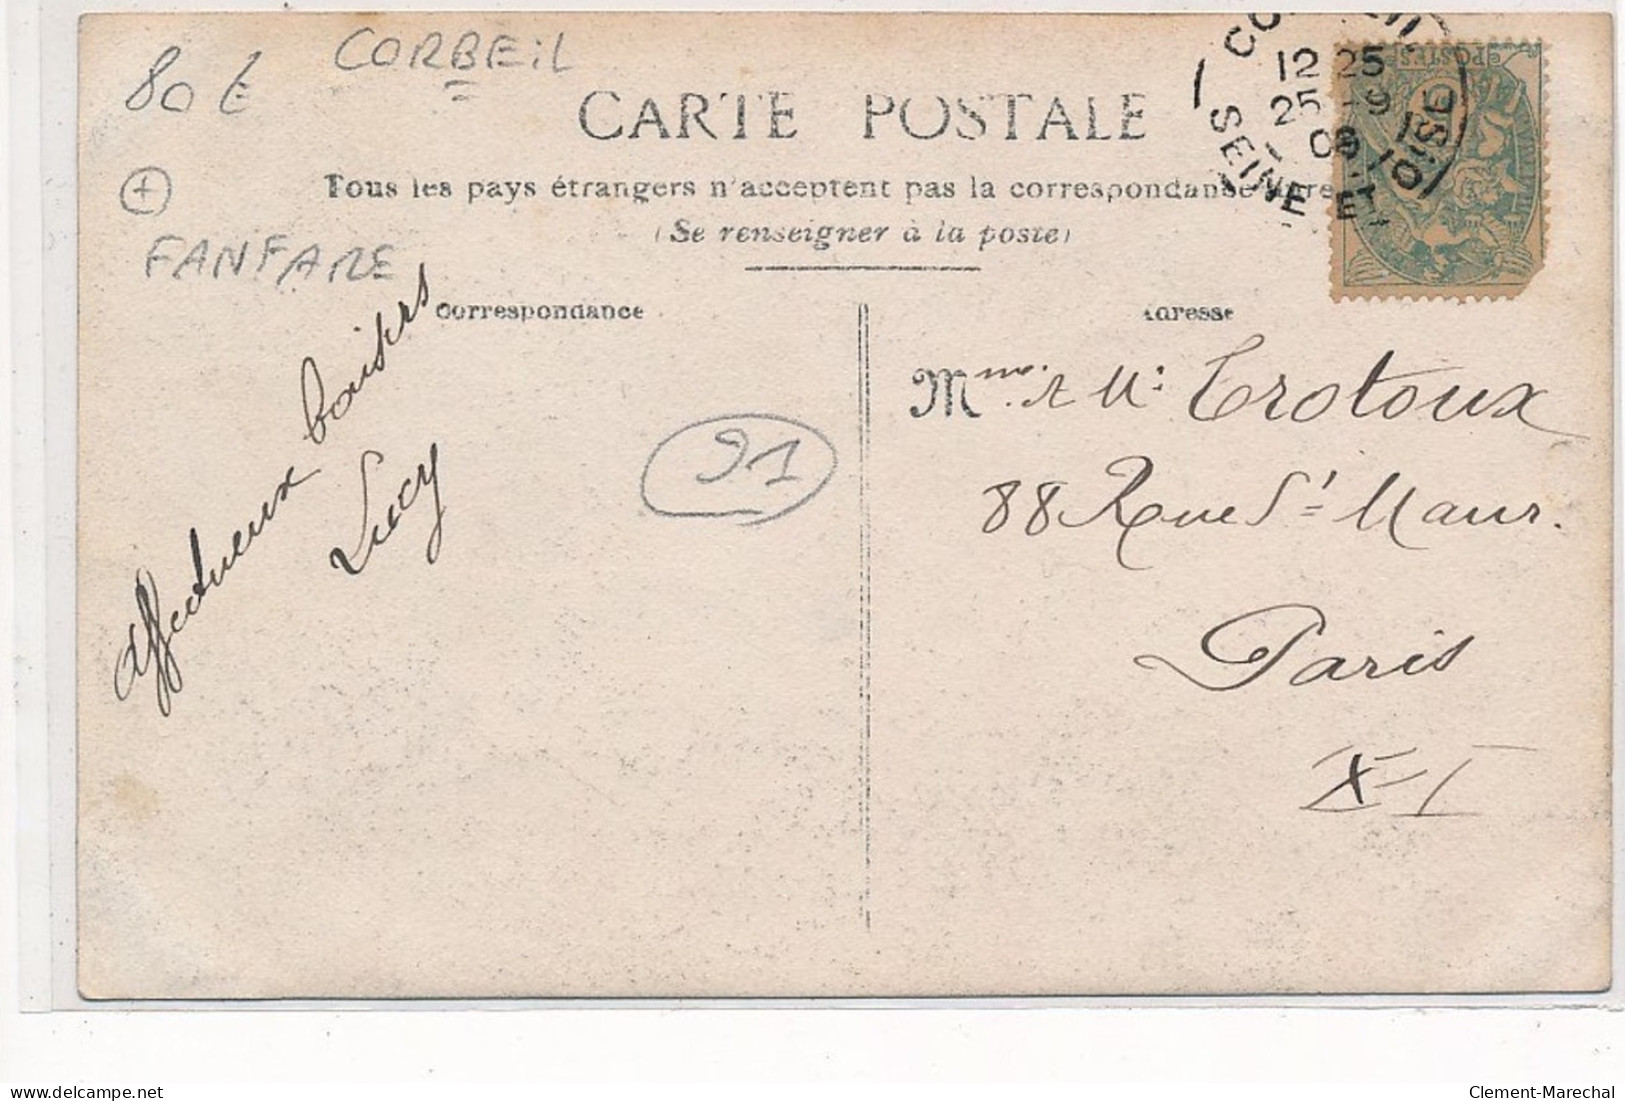 80 €
CORBEIL
CARTE POSTALE
12 25
25 -9
06
SEINE ET OISE
POSTES
Tous les pays étrangers n'acceptent pas la correspondance
(Se renseigner à la poste)
+
FANFARE
Correspondance
Adresse
affectueux baisers
Lucy
91
Mme et Mr Trotoux
88 Rue St Maur.
Paris
XI
delcampe.net
Clement-Marechal